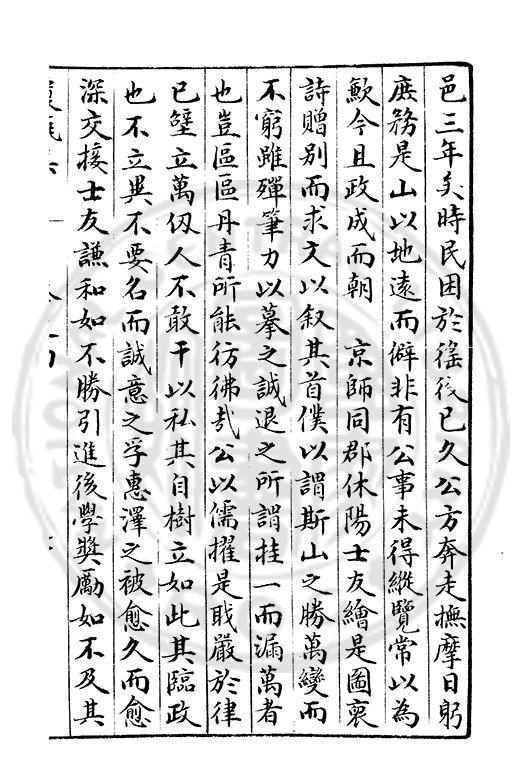 邑三年矣時民困於徭役已久公方奔走撫摩日躬
庶務是山以地遠而僻非有公事未得縱覽常以為
歉今且政成而朝　京師同郡休陽士友繪是圖裒
詩贈别而求文以叙其首僕以謂斯山之勝萬變而
不窮雖殫筆力以摹之誠退之所謂挂一而漏萬者
也豈區區丹青所能彷彿㢤公以儒擢是職嚴於律
已壁立萬仭人不敢干以私其自樹立如此其臨政
也不立異不要名而誠意之孚惠澤之被愈久而愈
深交接士友謙和如不勝引進後學奬勵如不及其